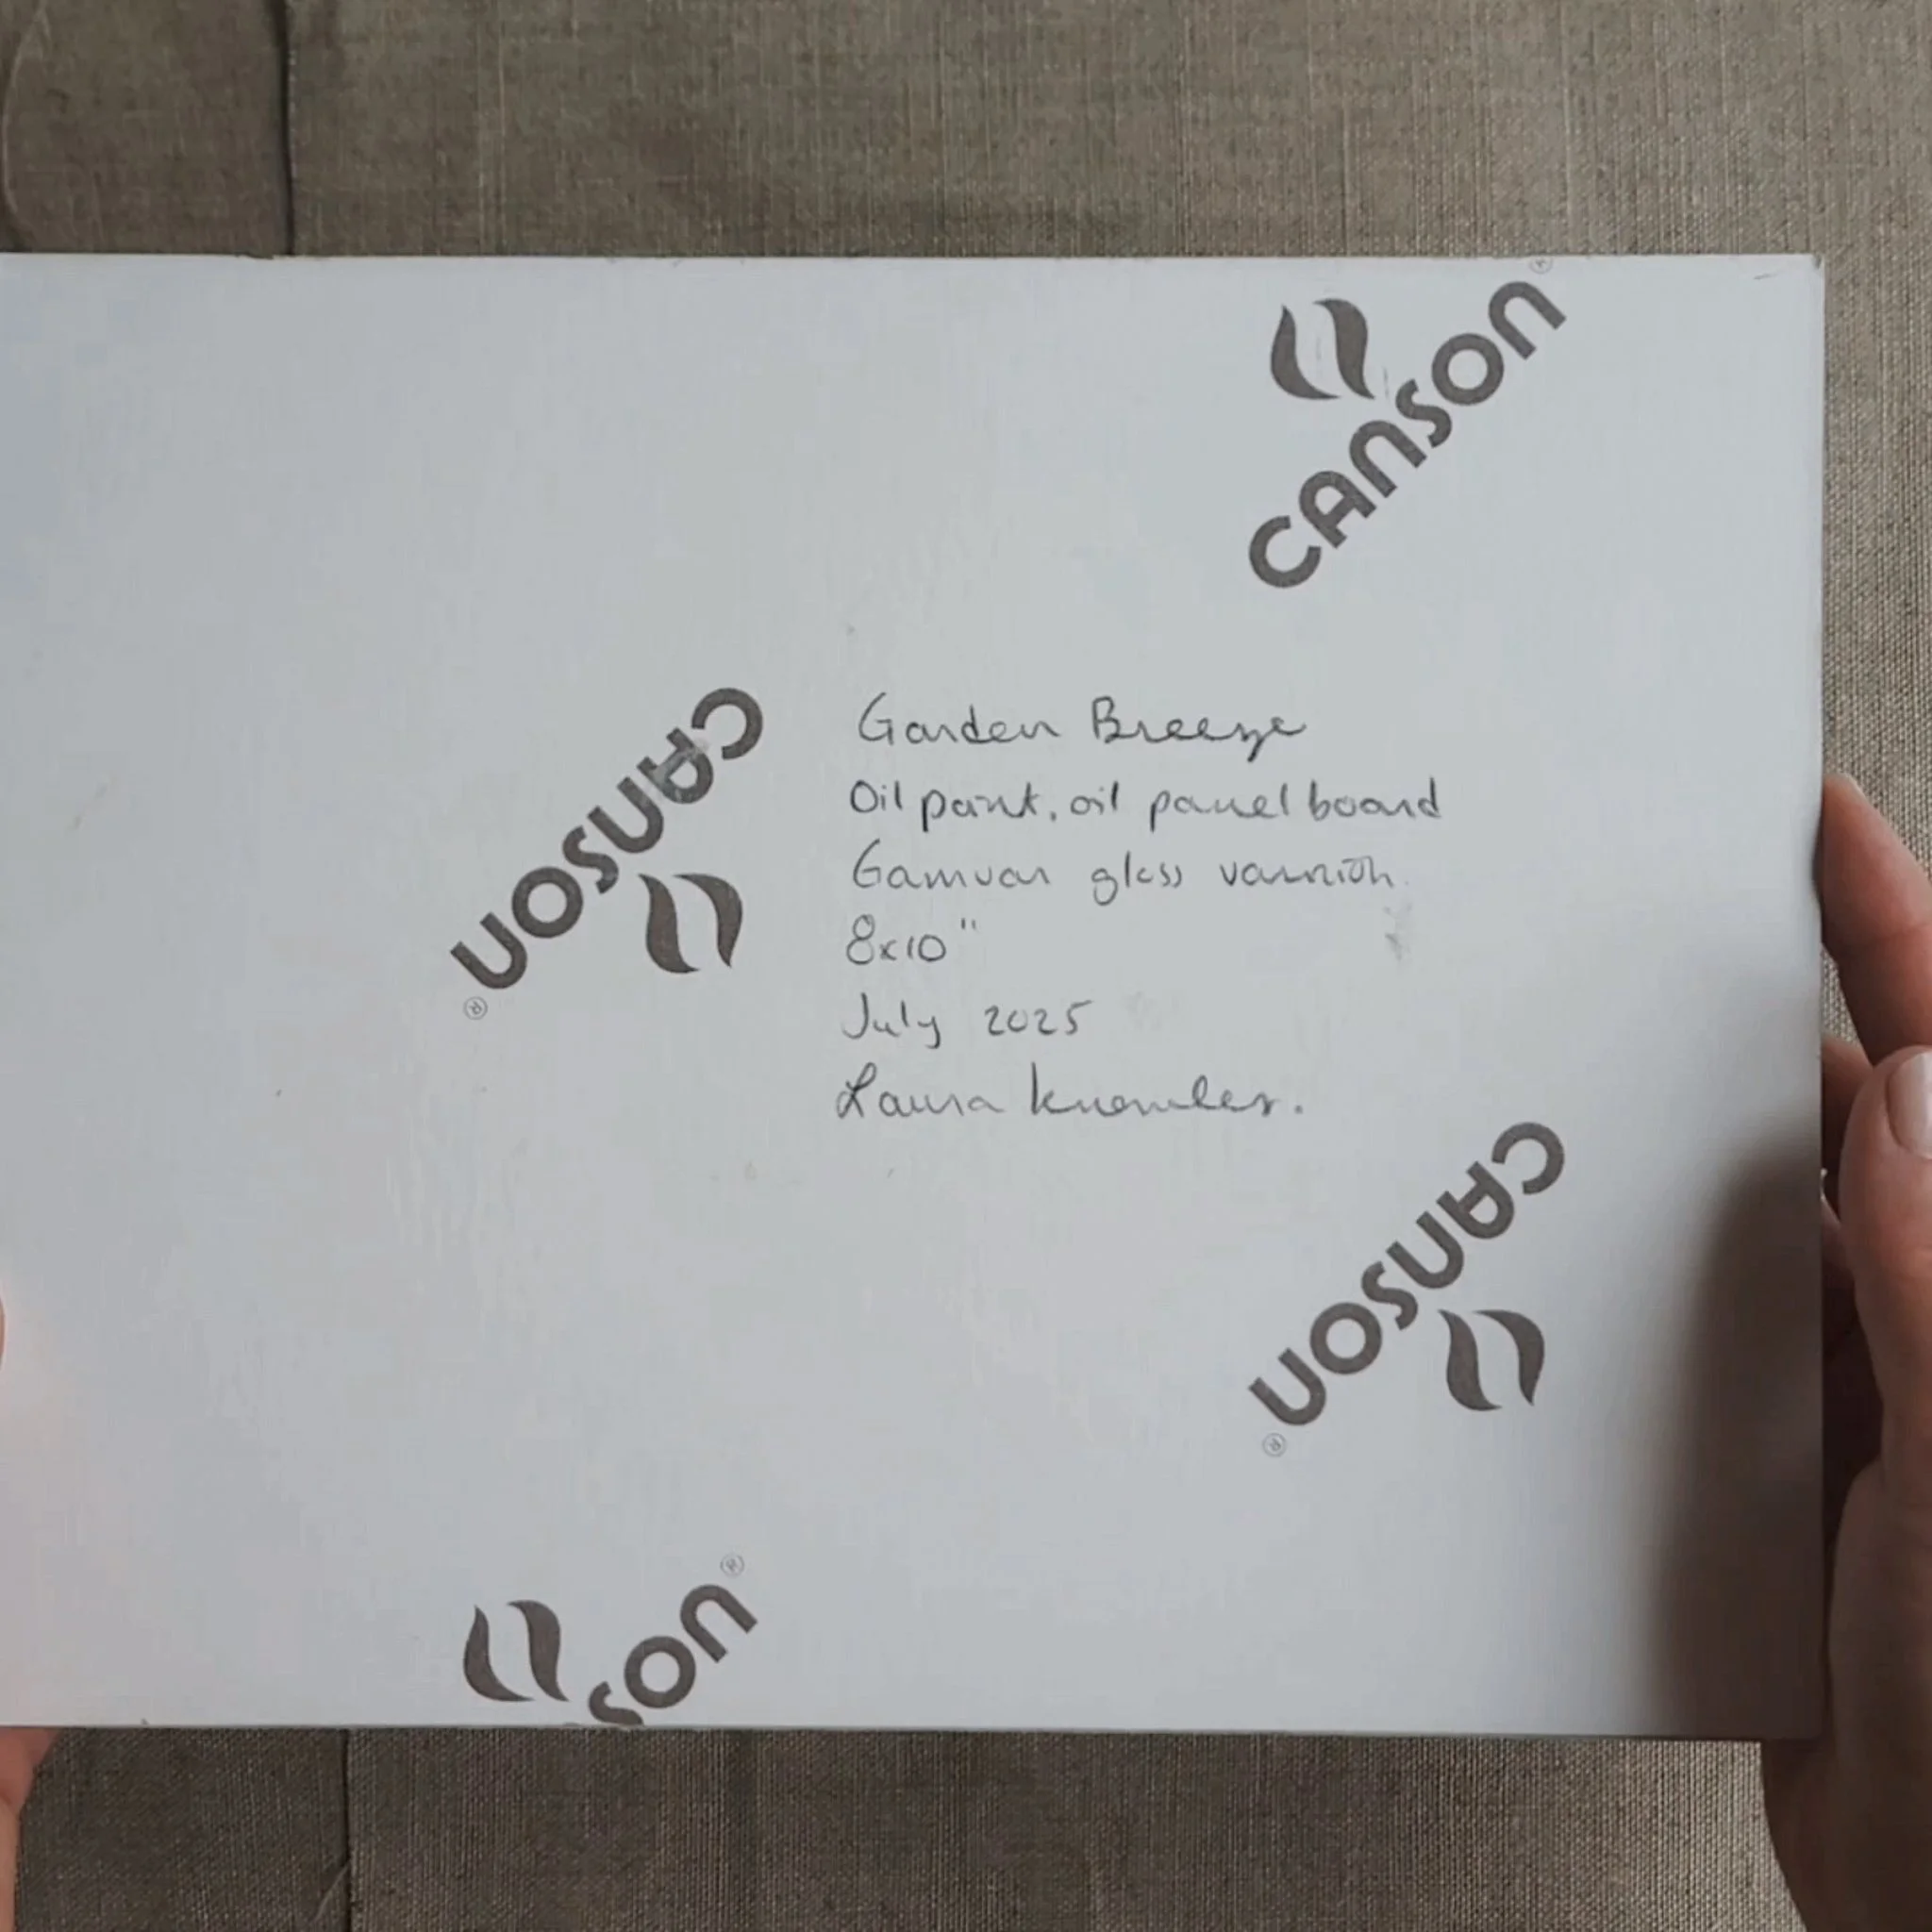 CANSON®
CANSON®
Garden Breeze
Oil paint, oil panel board
Gamvar gloss varnish.
8x10"
July 2025
Laura Knowles.
CANSON®
SON®